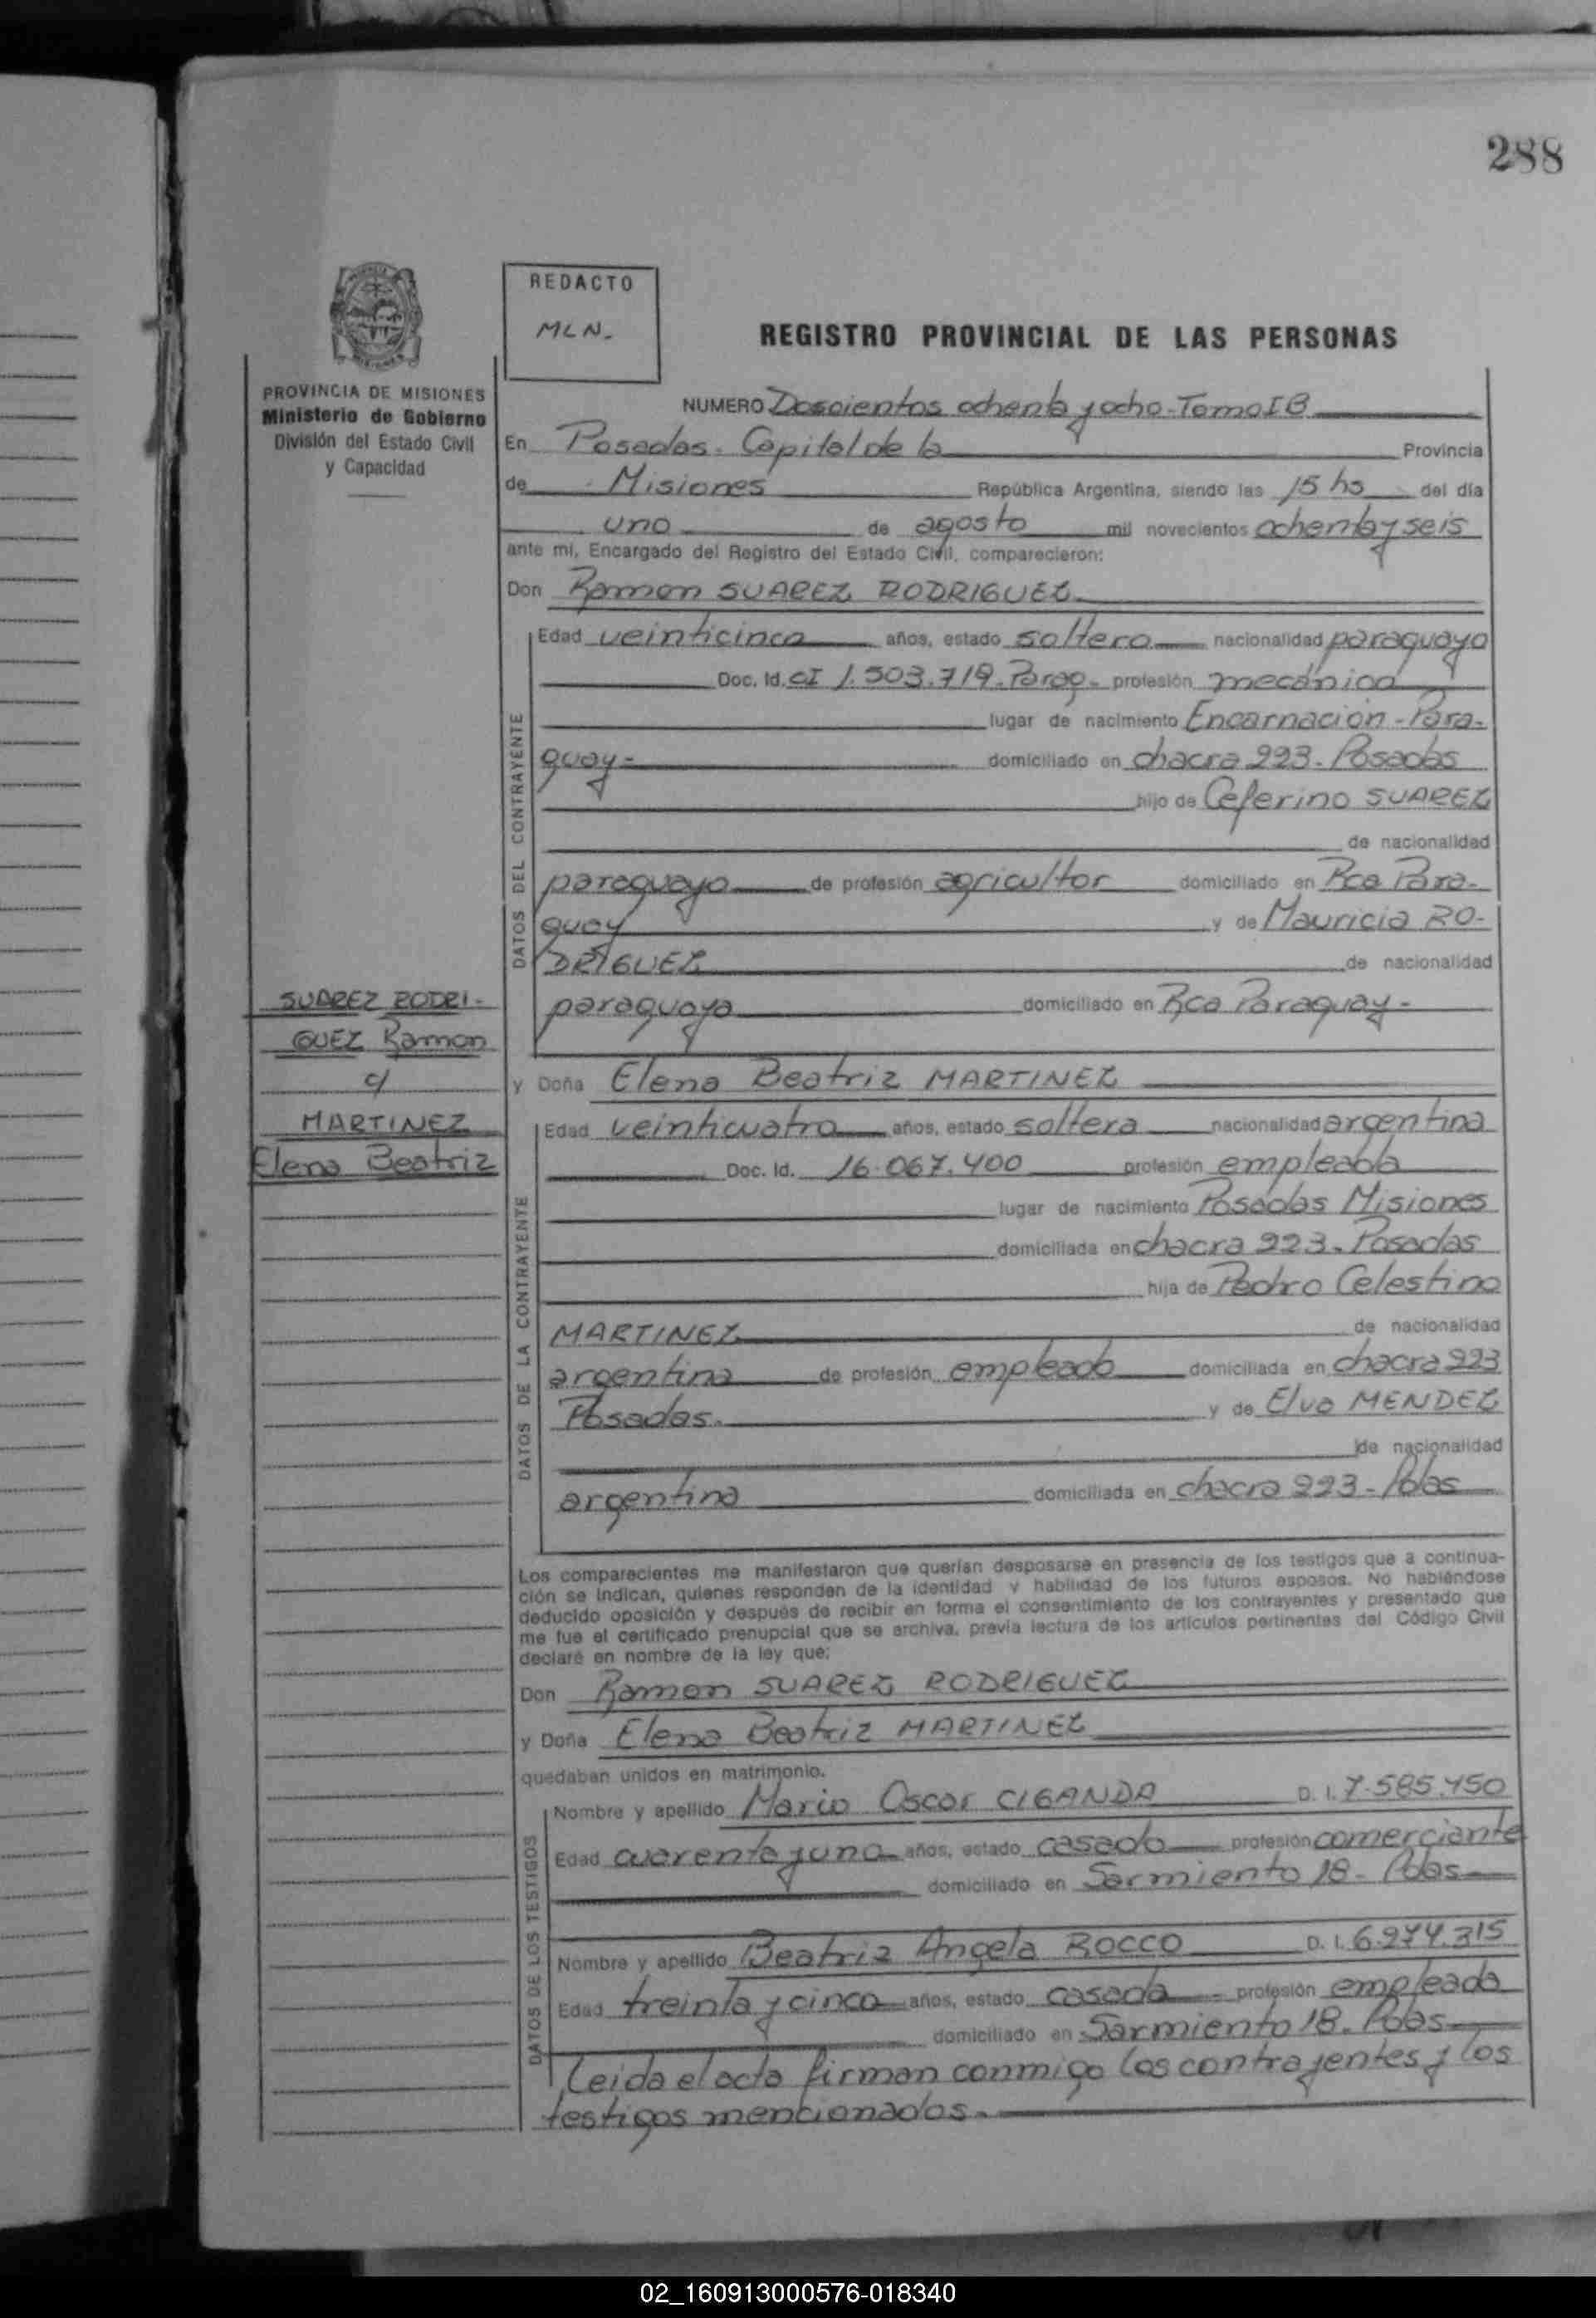 288
REDACTO
MLN.
REGISTRO PROVINCIAL DE LAS PERSONAS
PROVINCIA DE MISIONES
Ministerio de Gobierno
División del Estado Civil
y Capacidad
NUMERO Doscientos ochenta y ocho - Tomo I B
En Posadas. Capital de la Provincia
de Misiones República Argentina, siendo las 15 hs del día
uno de agosto mil novecientos ochenta y seis
ante mi, Encargado del Registro del Estado Civil, comparecieron:
Don Ramon SUAREZ RODRIGUEZ
DATOS DEL CONTRAYENTE
Edad veinticinco años, estado soltero nacionalidad paraguayo
Doc. Id. CI 1.503.719. Parag. profesión mecánico
lugar de nacimiento Encarnación - Para-
guay - domiciliado en chacra 223. Posadas
hijo de Ceferino SUAREZ
de nacionalidad
paraguayo de profesión agricultor domiciliado en Rca Para-
guay y de Mauricia RO-
DRIGUEZ de nacionalidad
paraguaya domiciliado en Rca Paraguay -
SUAREZ RODRI-
GUEZ Ramon
c/
MARTINEZ
Elena Beatriz
y Doña Elena Beatriz MARTINEZ
DATOS DE LA CONTRAYENTE
Edad veinticuatro años, estado soltera nacionalidad argentina
Doc. Id. 16.067.400 profesión empleada
lugar de nacimiento Posadas Misiones
domiciliada en chacra 223. Posadas
hija de Pedro Celestino
MARTINEZ de nacionalidad
argentina de profesión empleado domiciliada en chacra 223
Posadas. y de Elva MENDEZ
de nacionalidad
argentina domiciliada en chacra 223 - Pdas
Los comparecientes me manifestaron que querían desposarse en presencia de los testigos que a continua-
ción se indican, quienes responden de la identidad y habilidad de los futuros esposos. No habiéndose
deducido oposición y después de recibir en forma el consentimiento de los contrayentes y presentado que
me fue el certificado prenupcial que se archiva, previa lectura de los artículos pertinentes del Código Civil
declaré en nombre de la ley que;
Don Ramon SUAREZ RODRIGUEZ
y Doña Elena Beatriz MARTINEZ
quedaban unidos en matrimonio.
DATOS DE LOS TESTIGOS
Nombre y apellido Mario Oscar CIGANDA D. I. 7.585.450
Edad cuarenta y uno años, estado casado profesión comerciante
domiciliado en Sarmiento 18 - Pdas
Nombre y apellido Beatriz Angela ROCCO D. I. 6.274.315
Edad treinta y cinco años, estado casada profesión empleada
domiciliado en Sarmiento 18. Pdas
Leida el acta firman conmigo los contrayentes y los
testigos mencionados.
02_160913000576-018340